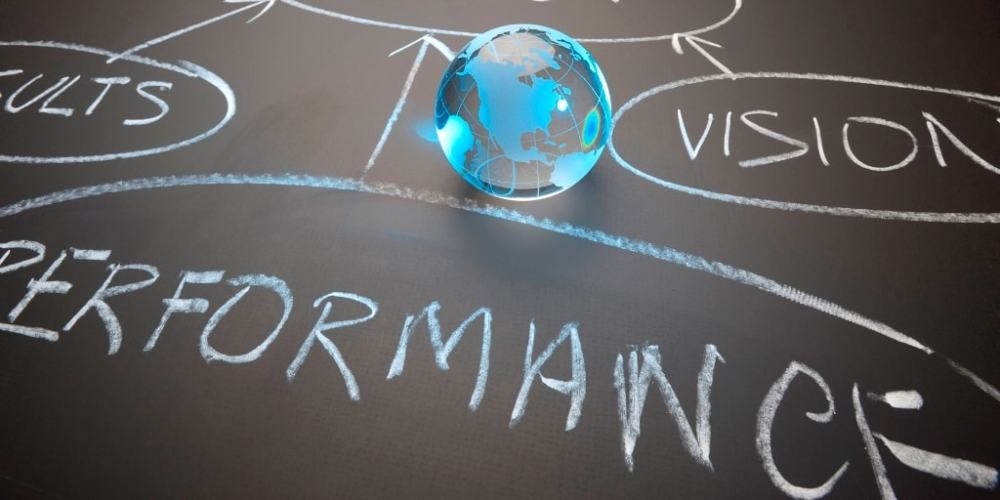 ULTS
VISION
PERFORMANCE